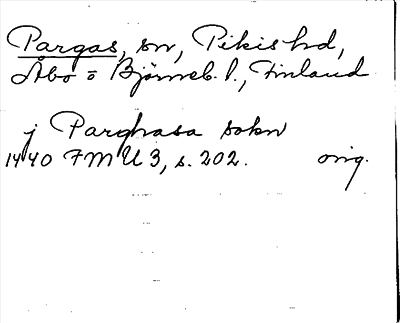 Pargas, sn, Pikis hd,
Åbo o Björneb. l., Finland
j Parghasa sokn
1440 FMU 3, s. 202. orig.